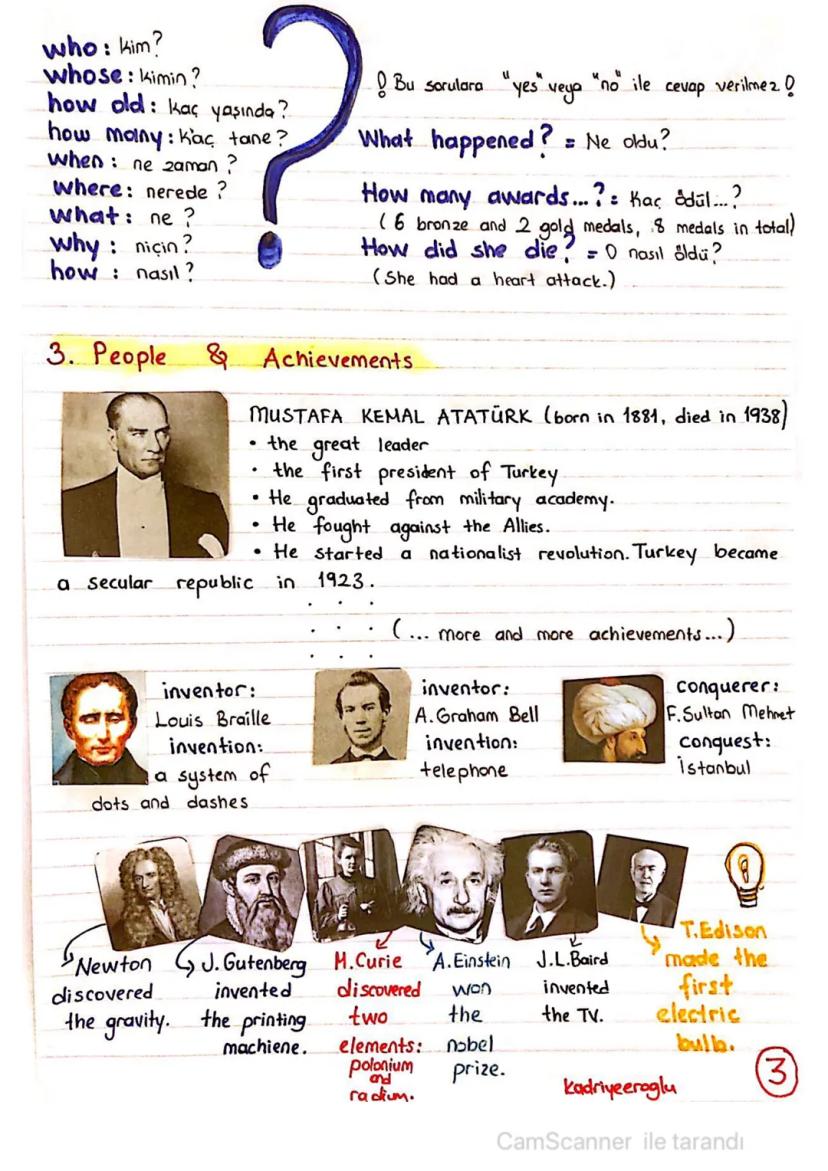 who : kim?
whose : kimin?
how old : kaç yaşında?
how many : kaç tane?
when : ne zaman?
where : nerede?
what : ne?
why : niçin?
how : nasıl?
! Bu sorulara "yes" veya "no" ile cevap verilmez !
What happened? = Ne oldu?
How many awards...? = Kaç ödül...?
(6 bronze and 2 gold medals, 8 medals in total)
How did she die? = O nasıl öldü?
(She had a heart attack.)
3. People & Achievements
MUSTAFA KEMAL ATATÜRK (born in 1881, died in 1938)
• the great leader
• the first president of Turkey
• He graduated from military academy.
• He fought against the Allies.
• He started a nationalist revolution. Turkey became
a secular republic in 1923.
(... more and more achievements...)
inventor:
Louis Braille
invention:
a system of
dots and dashes
inventor:
A. Graham Bell
invention:
telephone
conquerer:
F. Sultan Mehmet
conquest:
İstanbul
Newton
discovered
the gravity.
J. Gutenberg
invented
the printing
machiene.
M. Curie
discovered
two
elements:
polonium
and
radium.
A. Einstein
won
the
nobel
prize.
J.L. Baird
invented
the TV.
T. Edison
made the
first
electric
bulb.
kadriyeeroglu
3
CamScanner ile tarandı